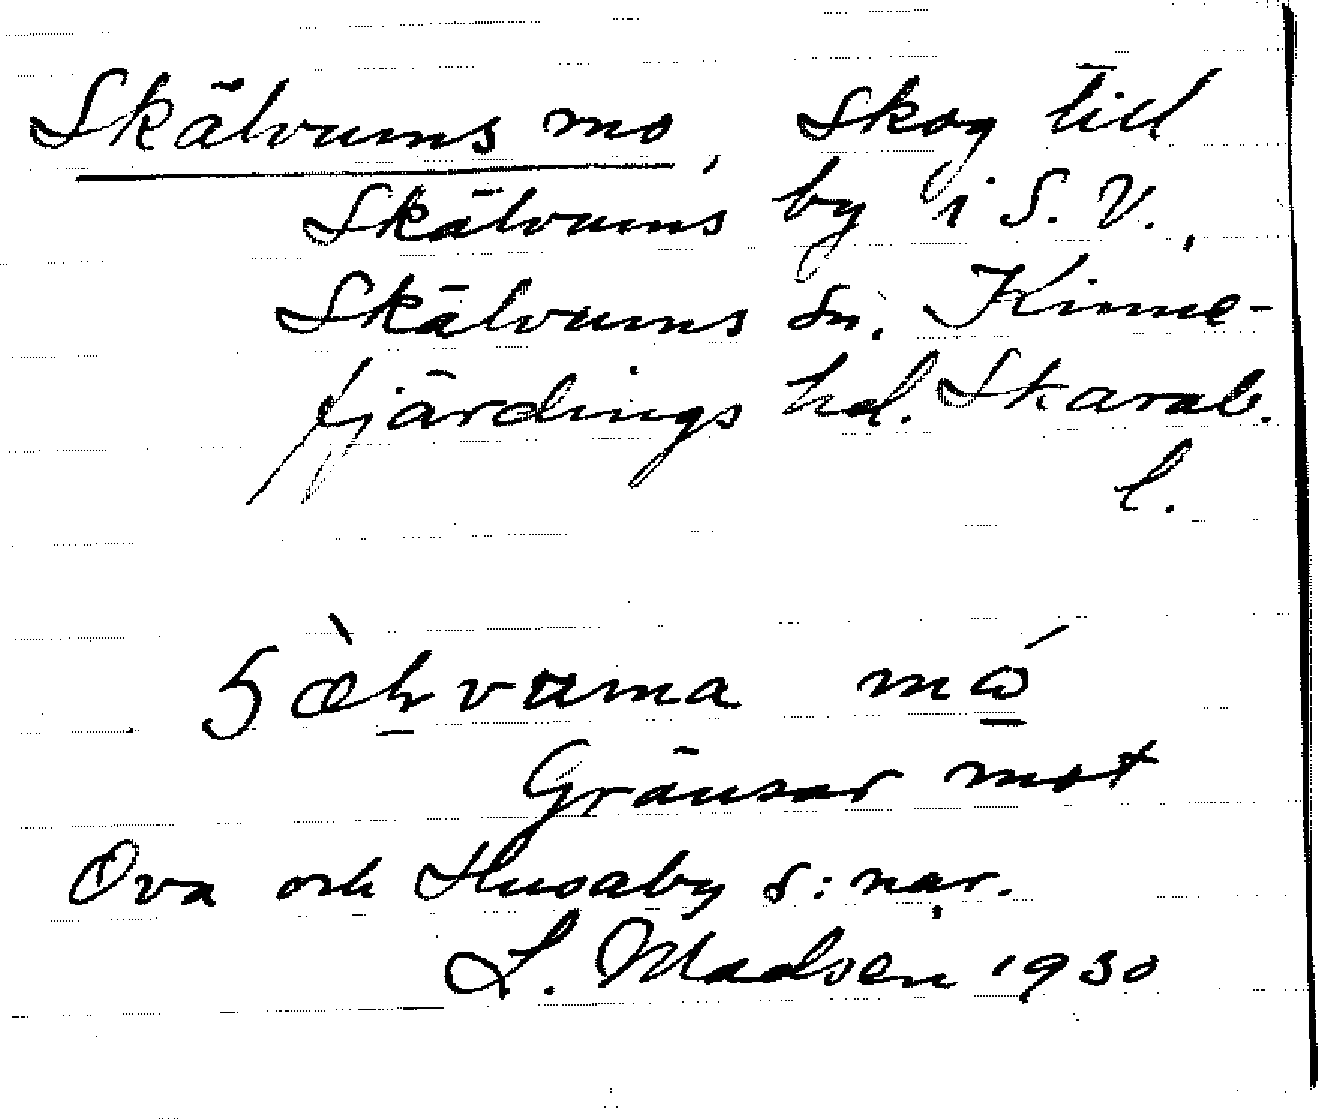 Skälvums mo, Skog till
Skälvums by i S.V.,
Skälvums sn, Kinne-
fjärdings hd. Skarab.
l.
Gränsar mot
Ova och Husaby s:nar.
L. Madsen 1930